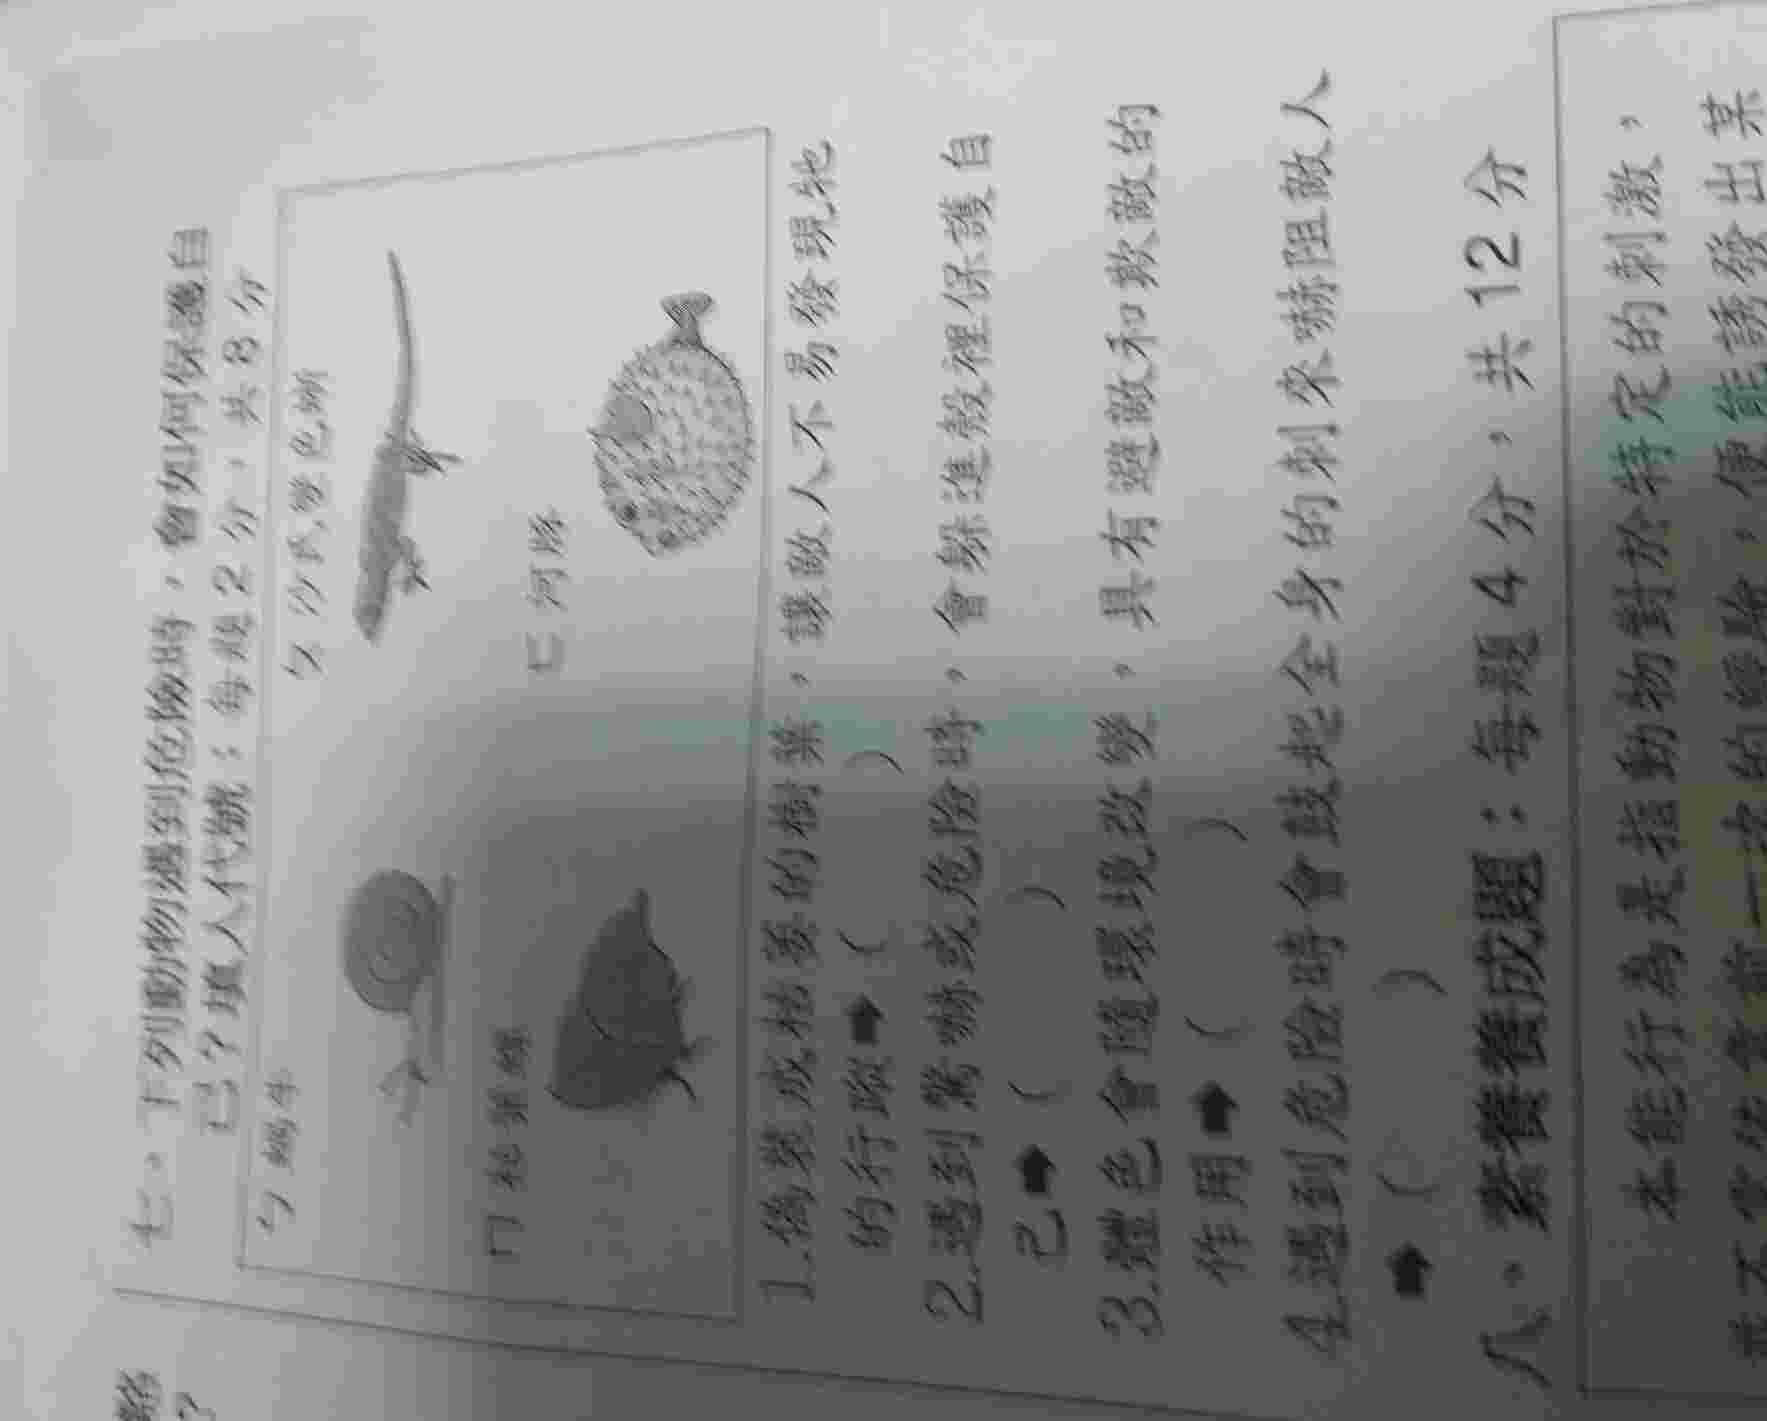 七、下列動物遇到危險時，會如何保護自
己？填入代號：每題2分，共8分
ㄅ 蝸牛
ㄆ 沙氏變色蜥
ㄇ 枯葉蝶
ㄈ 河豚
1.偽裝成枯萎的樹葉，讓敵人不易發現牠
的行蹤➡（　　）
2.遇到驚嚇或危險時，會躲進殼裡保護自
己➡（　　）
3.體色會隨環境改變，具有避敵和欺敵的
作用➡（　　）
4.遇到危險時會鼓起全身的刺來嚇阻敵人
➡（　　）
八、素養成題：每題4分，共12分
本能行為是指動物對於特定的刺激，
的經驗，便能誘發出某